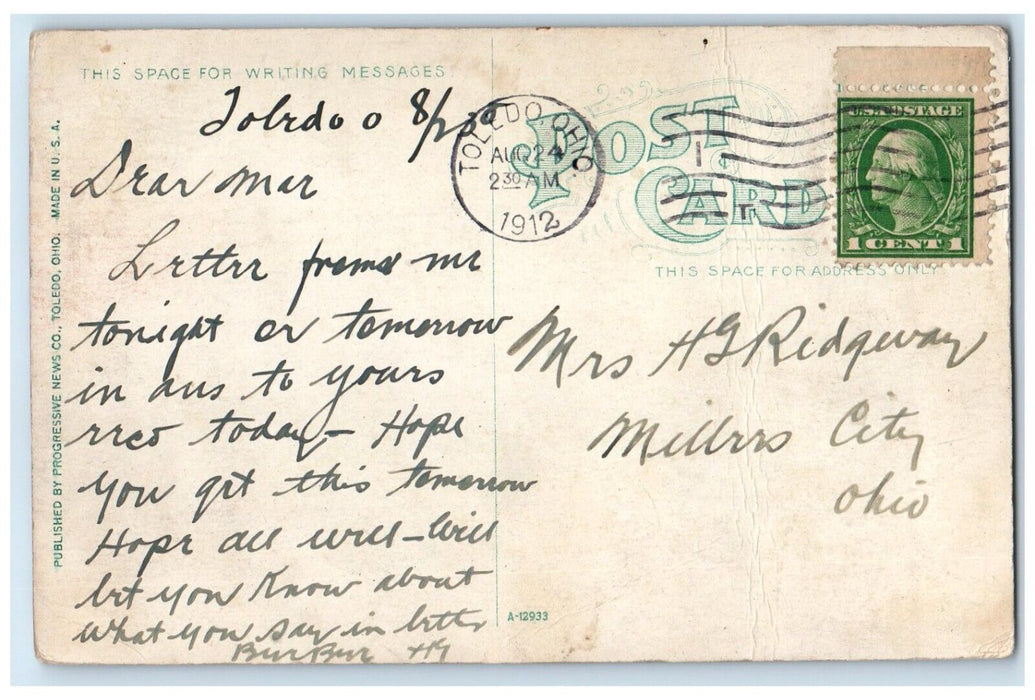 THIS SPACE FOR WRITING MESSAGES
Toledo O 8/23
Dear Mar
Letter from me
tonight or tomorrow
in ans to yours
rec today - Hope
you get this tomorrow
Hope all well - Will
let you Know about
what you say in letter
HG
PUBLISHED BY PROGRESSIVE NEWS CO., TOLEDO, OHIO. MADE IN U.S.A.
TOLEDO, OHIO
AUG 24
2 30 AM
1912
POST
CARD
U.S. POSTAGE
1 CENT 1
THIS SPACE FOR ADDRESS ONLY
Mrs HG Ridgeway
Millers City
Ohio
A-12933